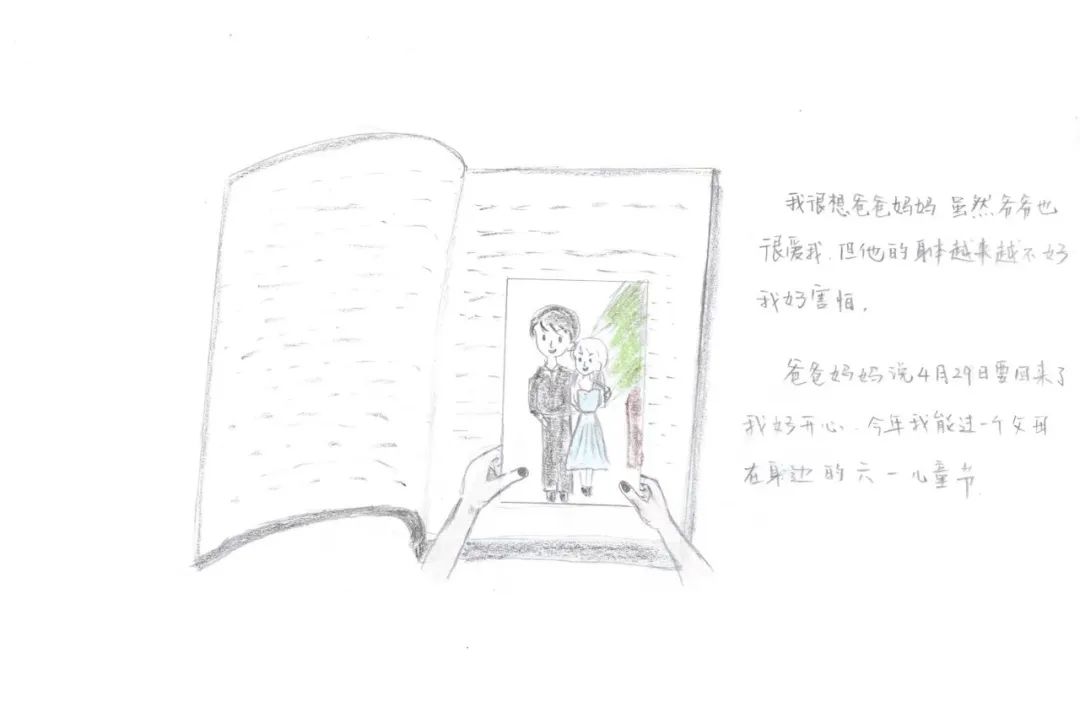 我很想爸爸妈妈 虽然爷爷也
很爱我.但他的身体越来越不好
我好害怕.
爸爸妈妈说4月29日要回来了
我好开心.今年我能过一个父母
在身边的六一儿童节.